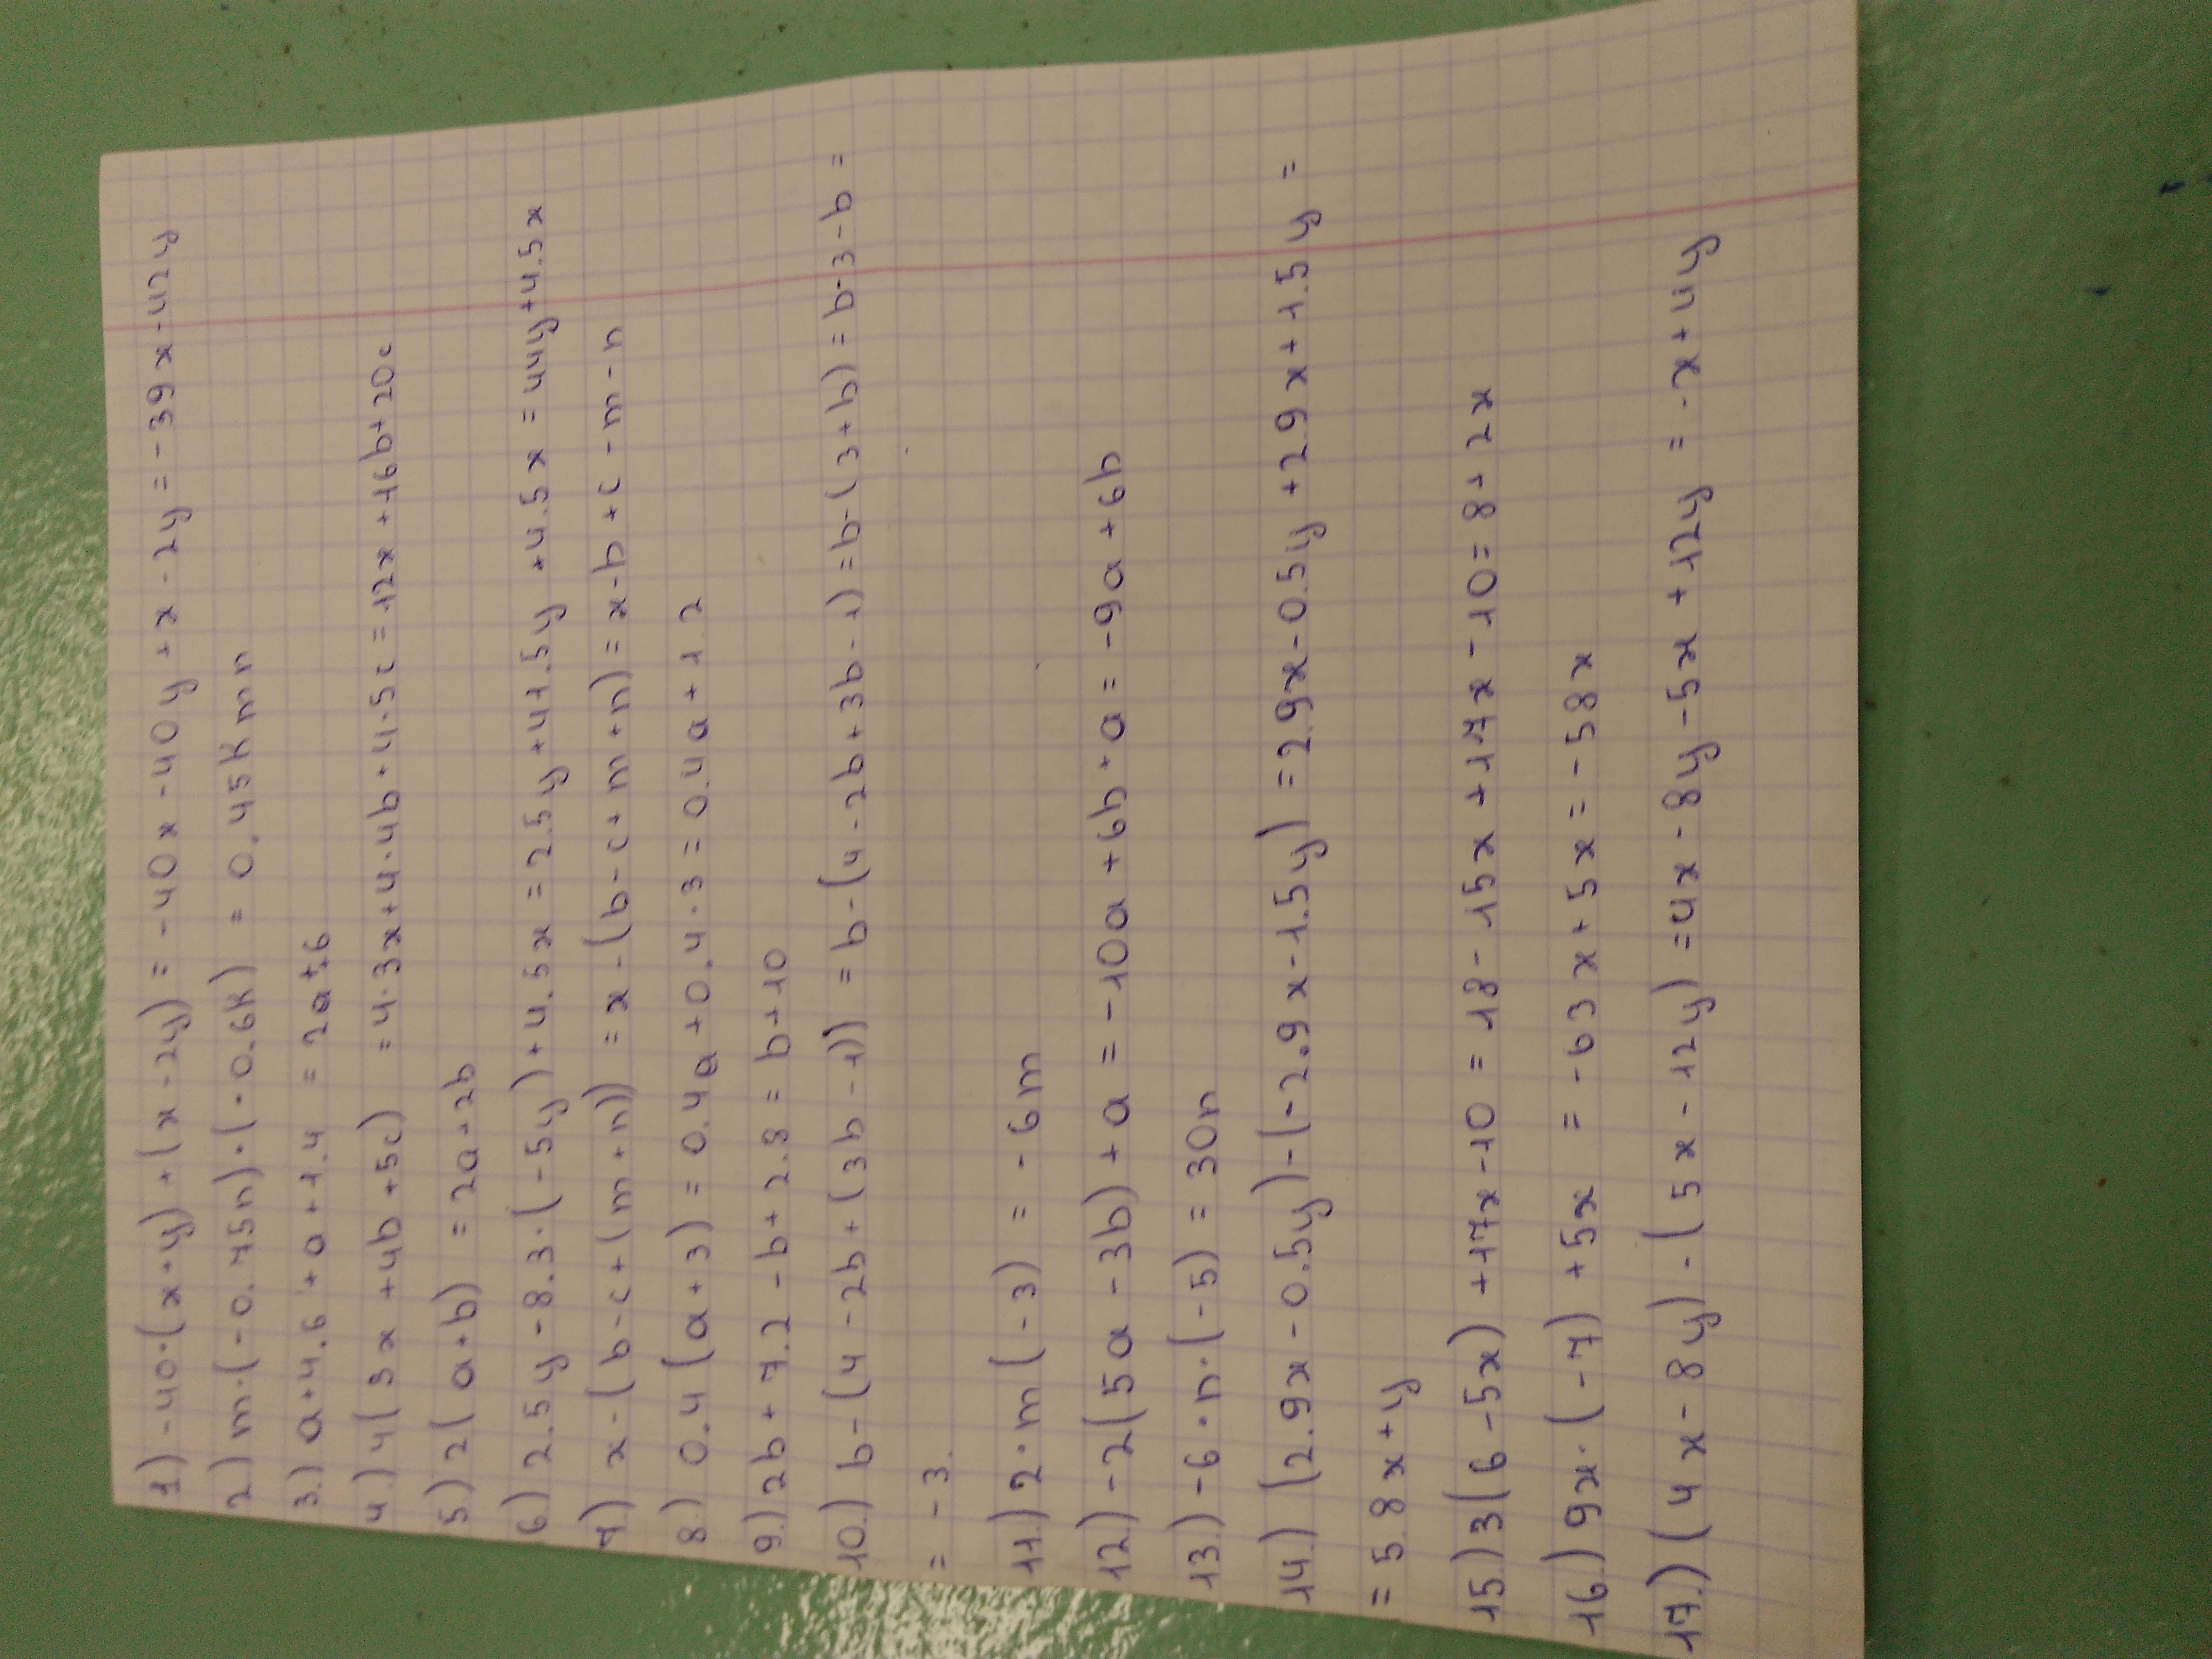 1) -40·(x+y)+(x-2y) = -40x-40y+x-2y = -39x-42y
2) m·(-0.75n)·(-0.6k) = 0.45kmn
3.) a+4.6+a+1.4 = 2a+6
4.) 4(3x+4b+5c) = 4·3x+4·4b+4·5c = 12x+16b+20c
5.) 2(a+b) = 2a+2b
6.) 2.5y-8.3·(-5y)+4.5x = 2.5y+41.5y+4.5x = 44y+4.5x
7.) x-(b-c+(m+n)) = x-(b-c+m+n) = x-b+c-m-n
8.) 0.4(a+3) = 0.4a+0.4·3 = 0.4a+1.2
9.) 2b+7.2-b+2.8 = b+10
10.) b-(4-2b+(3b-1)) = b-(4-2b+3b-1) = b-(3+b) = b-3-b =
= -3.
11.) 2·m(-3) = -6m
12.) -2(5a-3b)+a = -10a+6b+a = -9a+6b
13.) -6·n·(-5) = 30n
14.) (2.9x-0.5y)-(-2.9x-1.5y) = 2.9x-0.5y+2.9x+1.5y =
= 5.8x+y
15.) 3(6-5x)+17x-10 = 18-15x+17x-10 = 8+2x
16.) 9x·(-7)+5x = -63x+5x = -58x
17.) (4x-8y)-(5x-12y) = 4x-8y-5x+12y = -x+4y